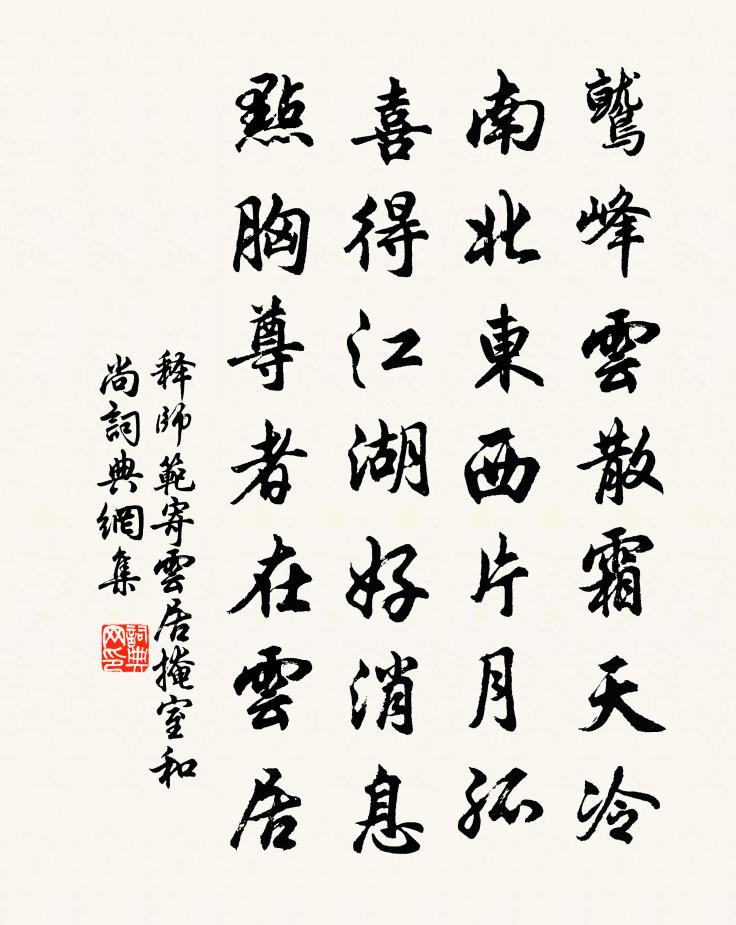 鷲峰雲散霜天冷
南北東西片月孤
喜得江湖好消息
點胸尊者在雲居
释師範寄雲居掩室和
尚詞典網集
詞典
网印